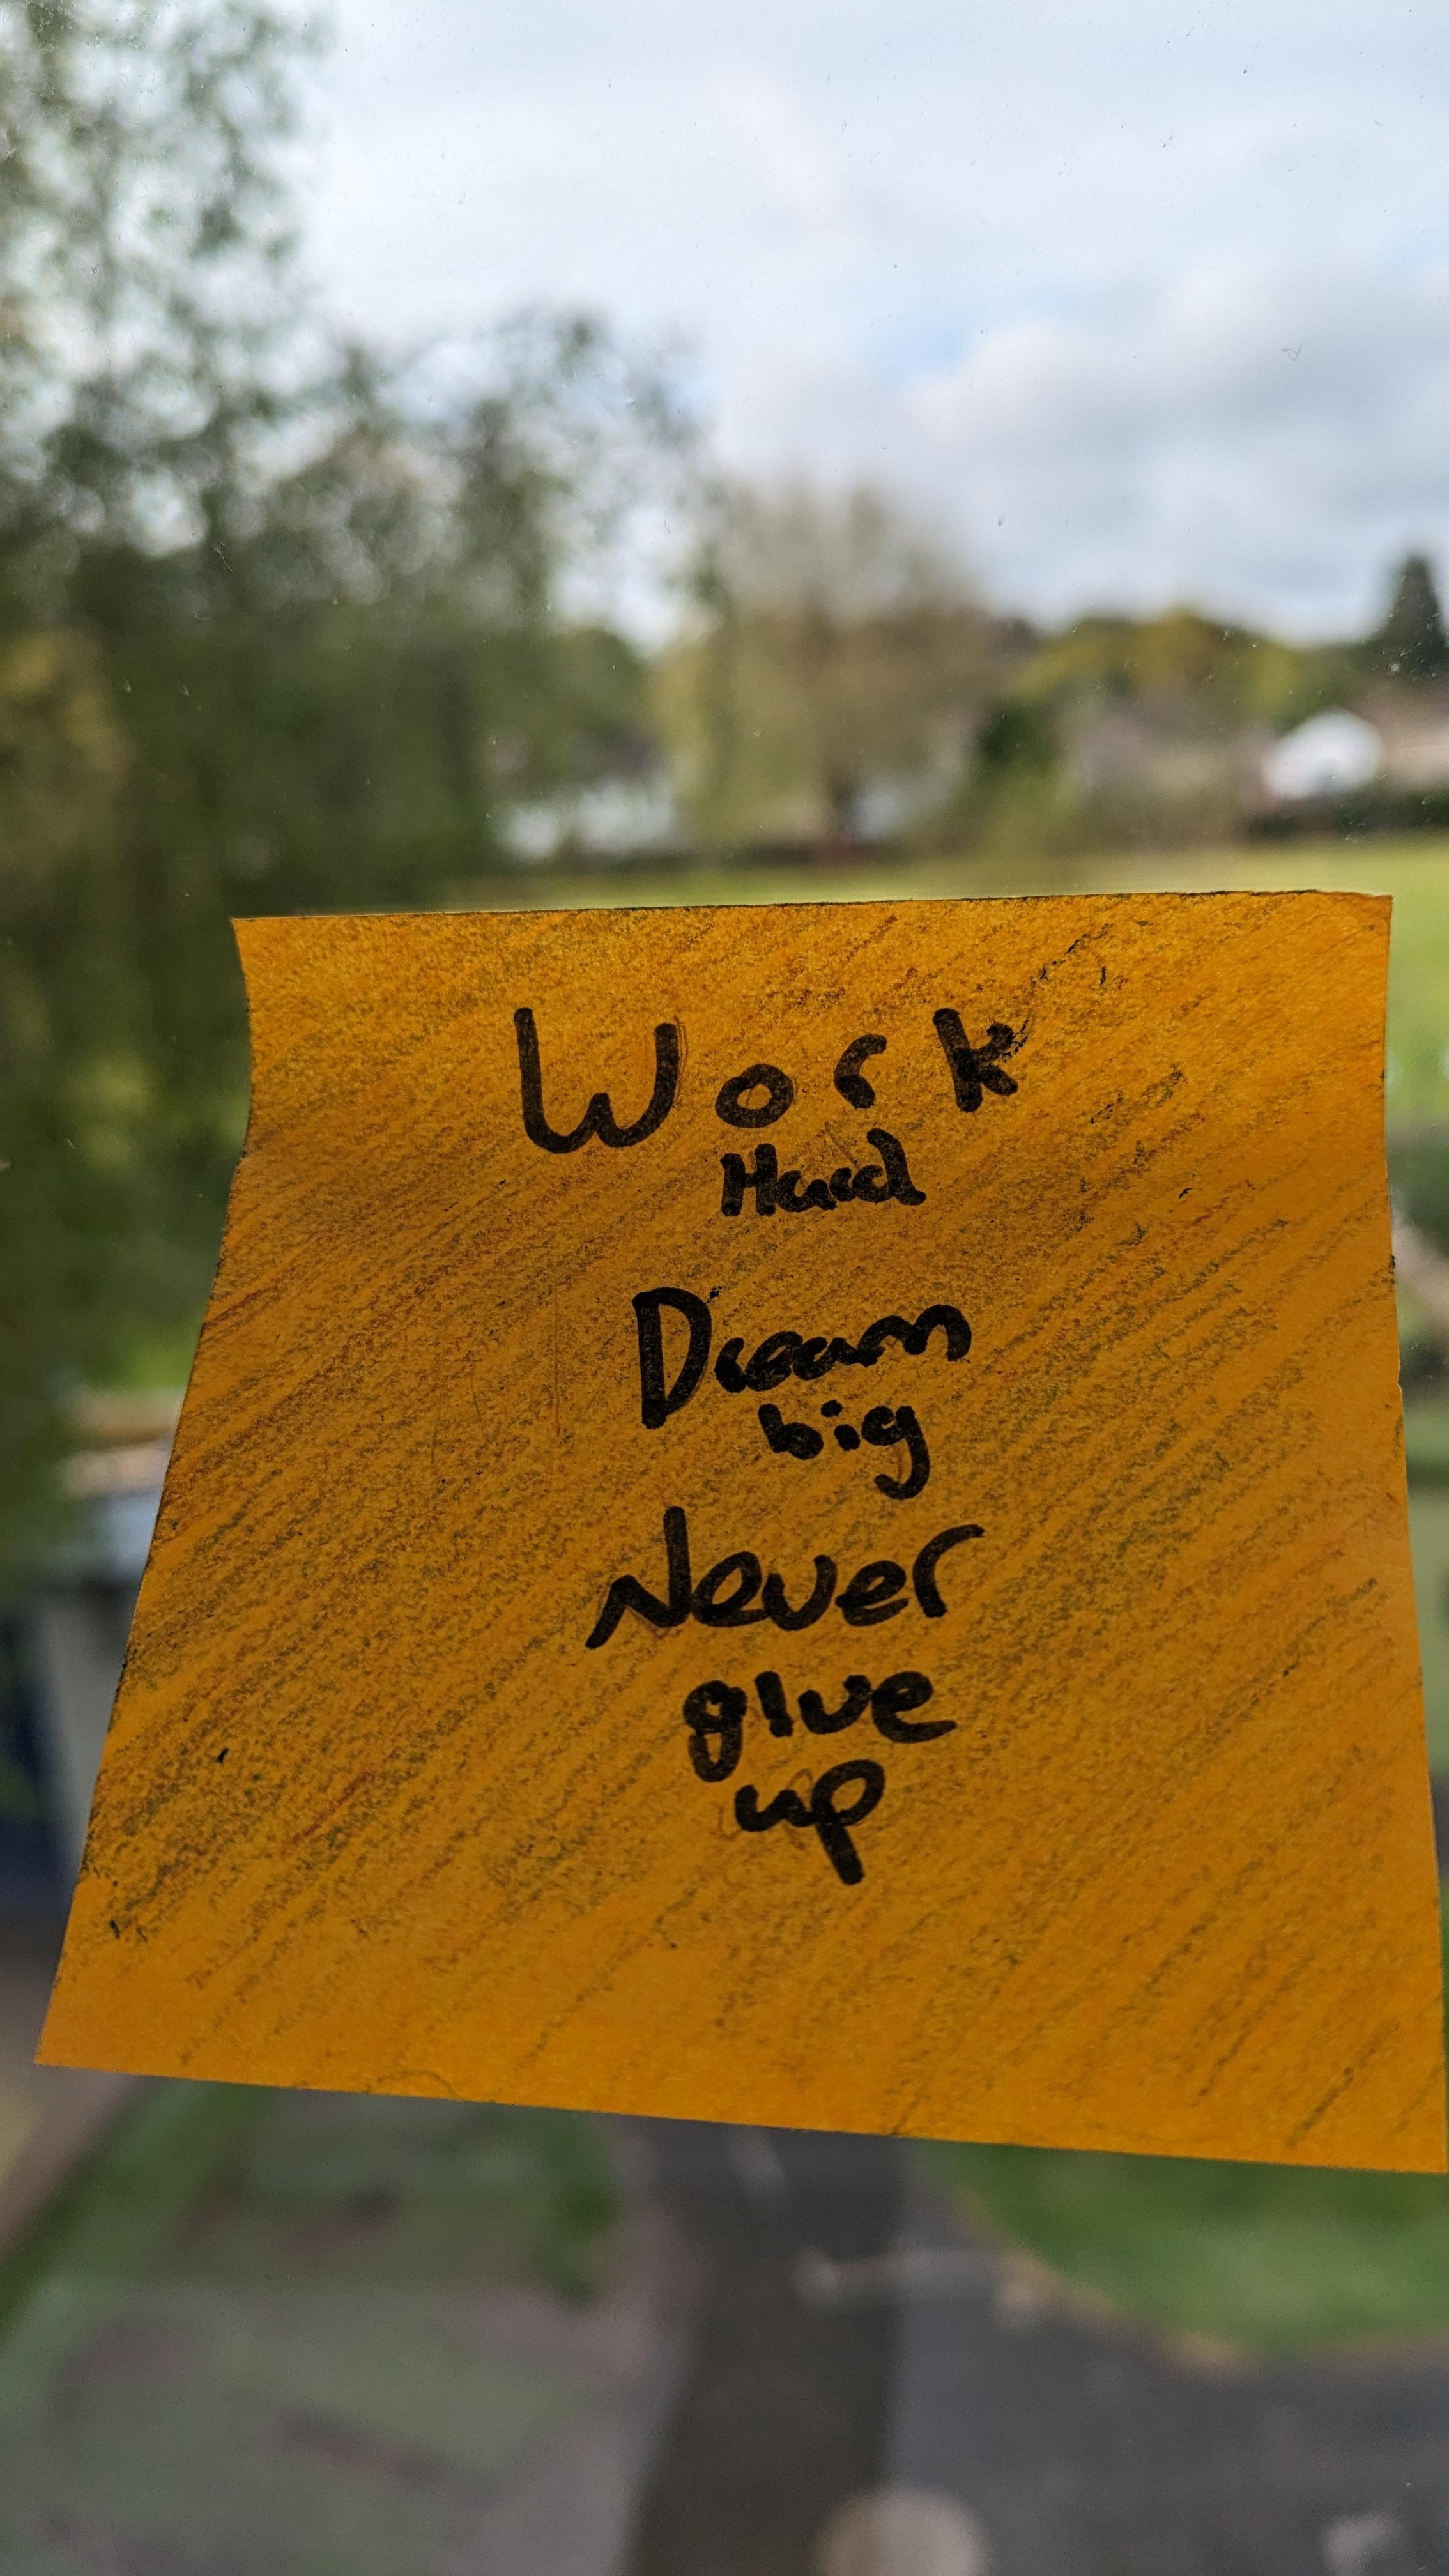 Work
Hard
Dream
big
Never
give
up